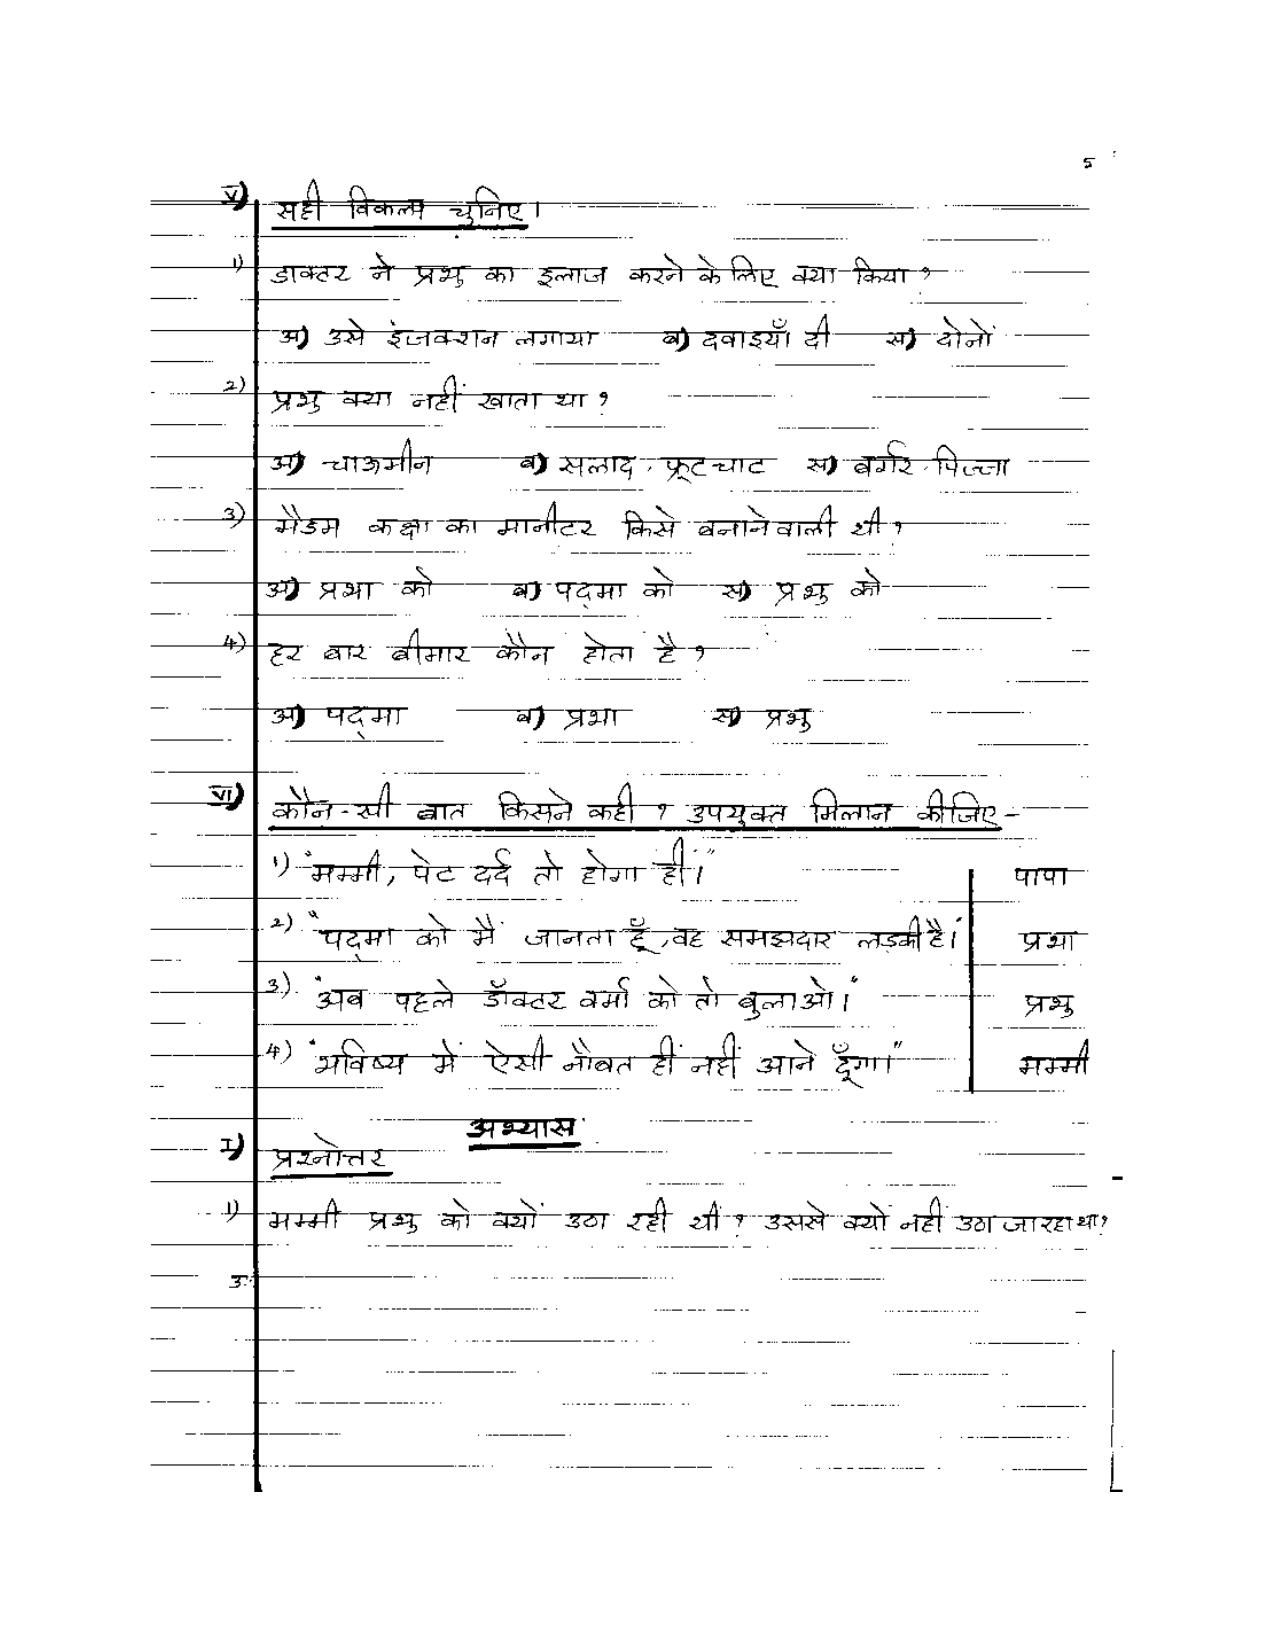 5
V) सही विकल्प चुनिए।
1) डाक्टर ने प्रभु का इलाज करने के लिए क्या किया?
अ) उसे इंजक्शन लगाया ब) दवाइयाँ दी स) दोनों
2) प्रभु क्या नहीं खाता था?
अ) चाऊमीन ब) सलाद, फ्रूटचाट स) बर्गर-पिज्जा
3) मैडम कक्षा का मानीटर किसे बनाने वाली थी?
अ) प्रभा को ब) पद्मा को स) प्रभु को
4) हर बार बीमार कौन होता है?
अ) पद्मा ब) प्रभा स) प्रभु
VI) कौन-सी बात किसने कही? उपयुक्त मिलान कीजिए-
1) "मम्मी, पेट दर्द तो होगा ही।" पापा
2) "पद्मा को मैं जानता हूँ, वह समझदार लड़की है।" प्रभा
3) "अब पहले डॉक्टर वर्मा को तो बुलाओ।" प्रभु
4) "भविष्य में ऐसी नौबत ही नहीं आने दूँगा।" मम्मी
अभ्यास
I) प्रश्नोत्तर
1) मम्मी प्रभु को क्यों उठा रही थी? उससे क्यों नहीं उठा जा रहा था?
उ.